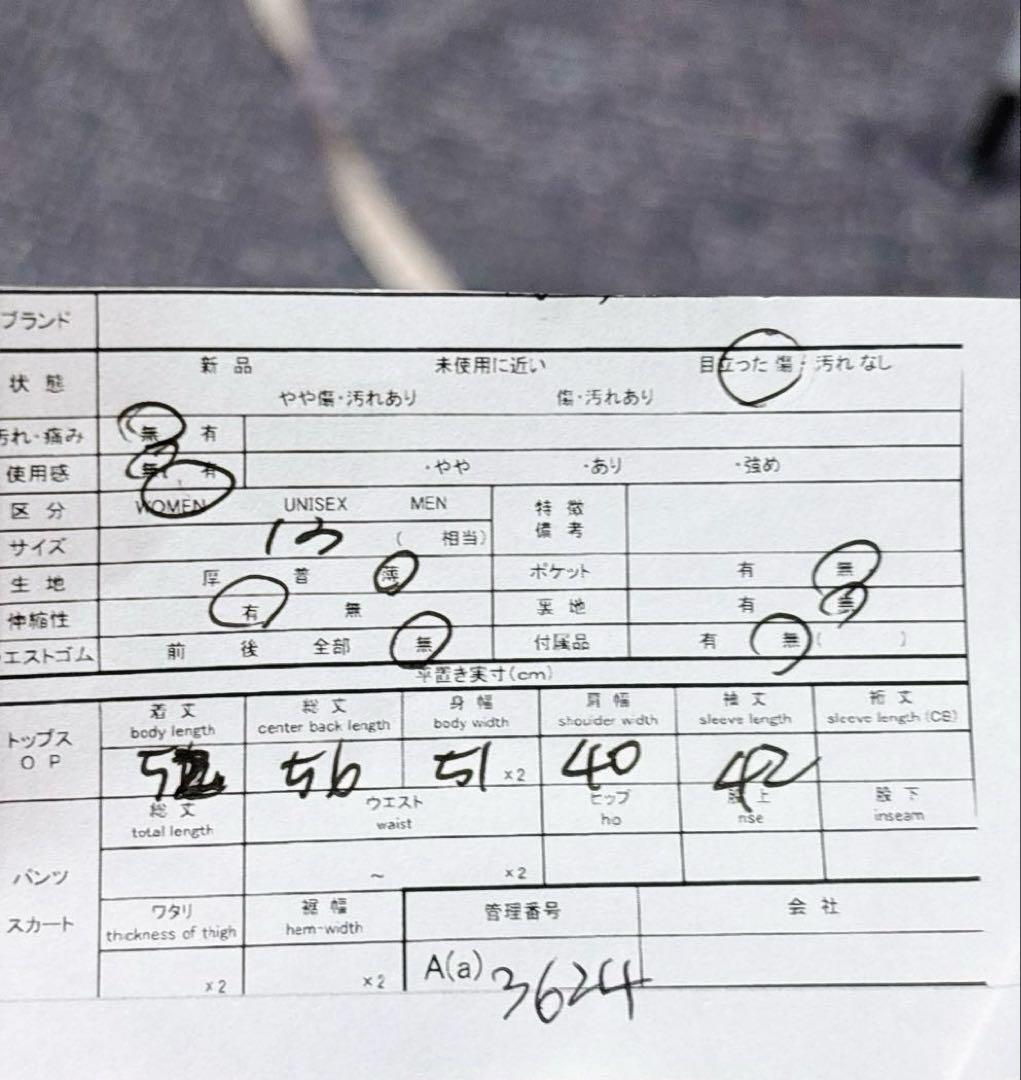 ブランド
状態 新品 未使用に近い 目立った傷・汚れなし
やや傷・汚れあり 傷・汚れあり
汚れ・痛み 無 有
使用感 無 有 ・やや ・あり ・強め
区分 WOMEN UNISEX MEN 特徴備考
サイズ 13 ( 相当)
生地 厚 普 薄 ポケット 有 無
伸縮性 有 無 裏地 有 無
エストゴム 前 後 全部 無 付属品 有 無 ( )
平置き実寸(cm)
トップス OP 着丈 総丈 身幅 肩幅 袖丈 裄丈
body length center back length body width shoulder width sleeve length sleeve length (CB)
56 51 ×2 40 42
総丈 ウエスト ヒップ 股上 股下
total length waist inseam
パンツ ~ ×2
スカート ワタリ 裾幅 管理番号 会社
thickness of thigh hem-width
×2 ×2 A(a) 3624